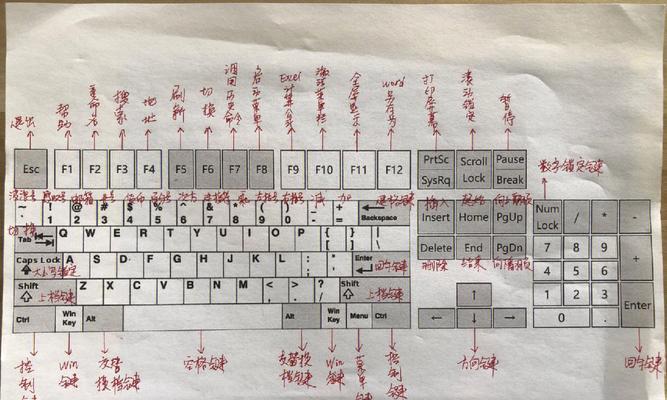 退出
帮助
重命名
搜索
地址
刷新
切换
调用历史命令
Excel
全屏显示
word
打印屏幕
滚动锁定
暂停
数字锁定键
Esc F1 F2 F3 F4 F5 F6 F7 F8 F9 F10 F11 F12 PrtSc SysRq Scroll Lock Pause Break
减 加 退格键
~ ! @ # $ % ^ & * ( ) _ +
` 1 2 3 4 5 6 7 8 9 0 - = Backspace
插入
Insert Home PgUp Num Lock / * -
切换
Tab Q W E R T Y U I O P { [ } ] | \
Delete End PgDn 7 8 9 +
删除 结束
Caps Lock A S D F G H J K L : ; " ' Enter
大小写锁定 回车键
4 5 6
Shift Z X C V B N M < , > . ? / Shift
上档键 上档键
↑ 1 2 3 Enter
Ctrl Win Key Alt Alt Win Key Menu Ctrl
← ↓ → 0 .
控制键
Win键
交替换档键
空格键
交替换档键
Win键
菜单键
控制键
方向键
回车键